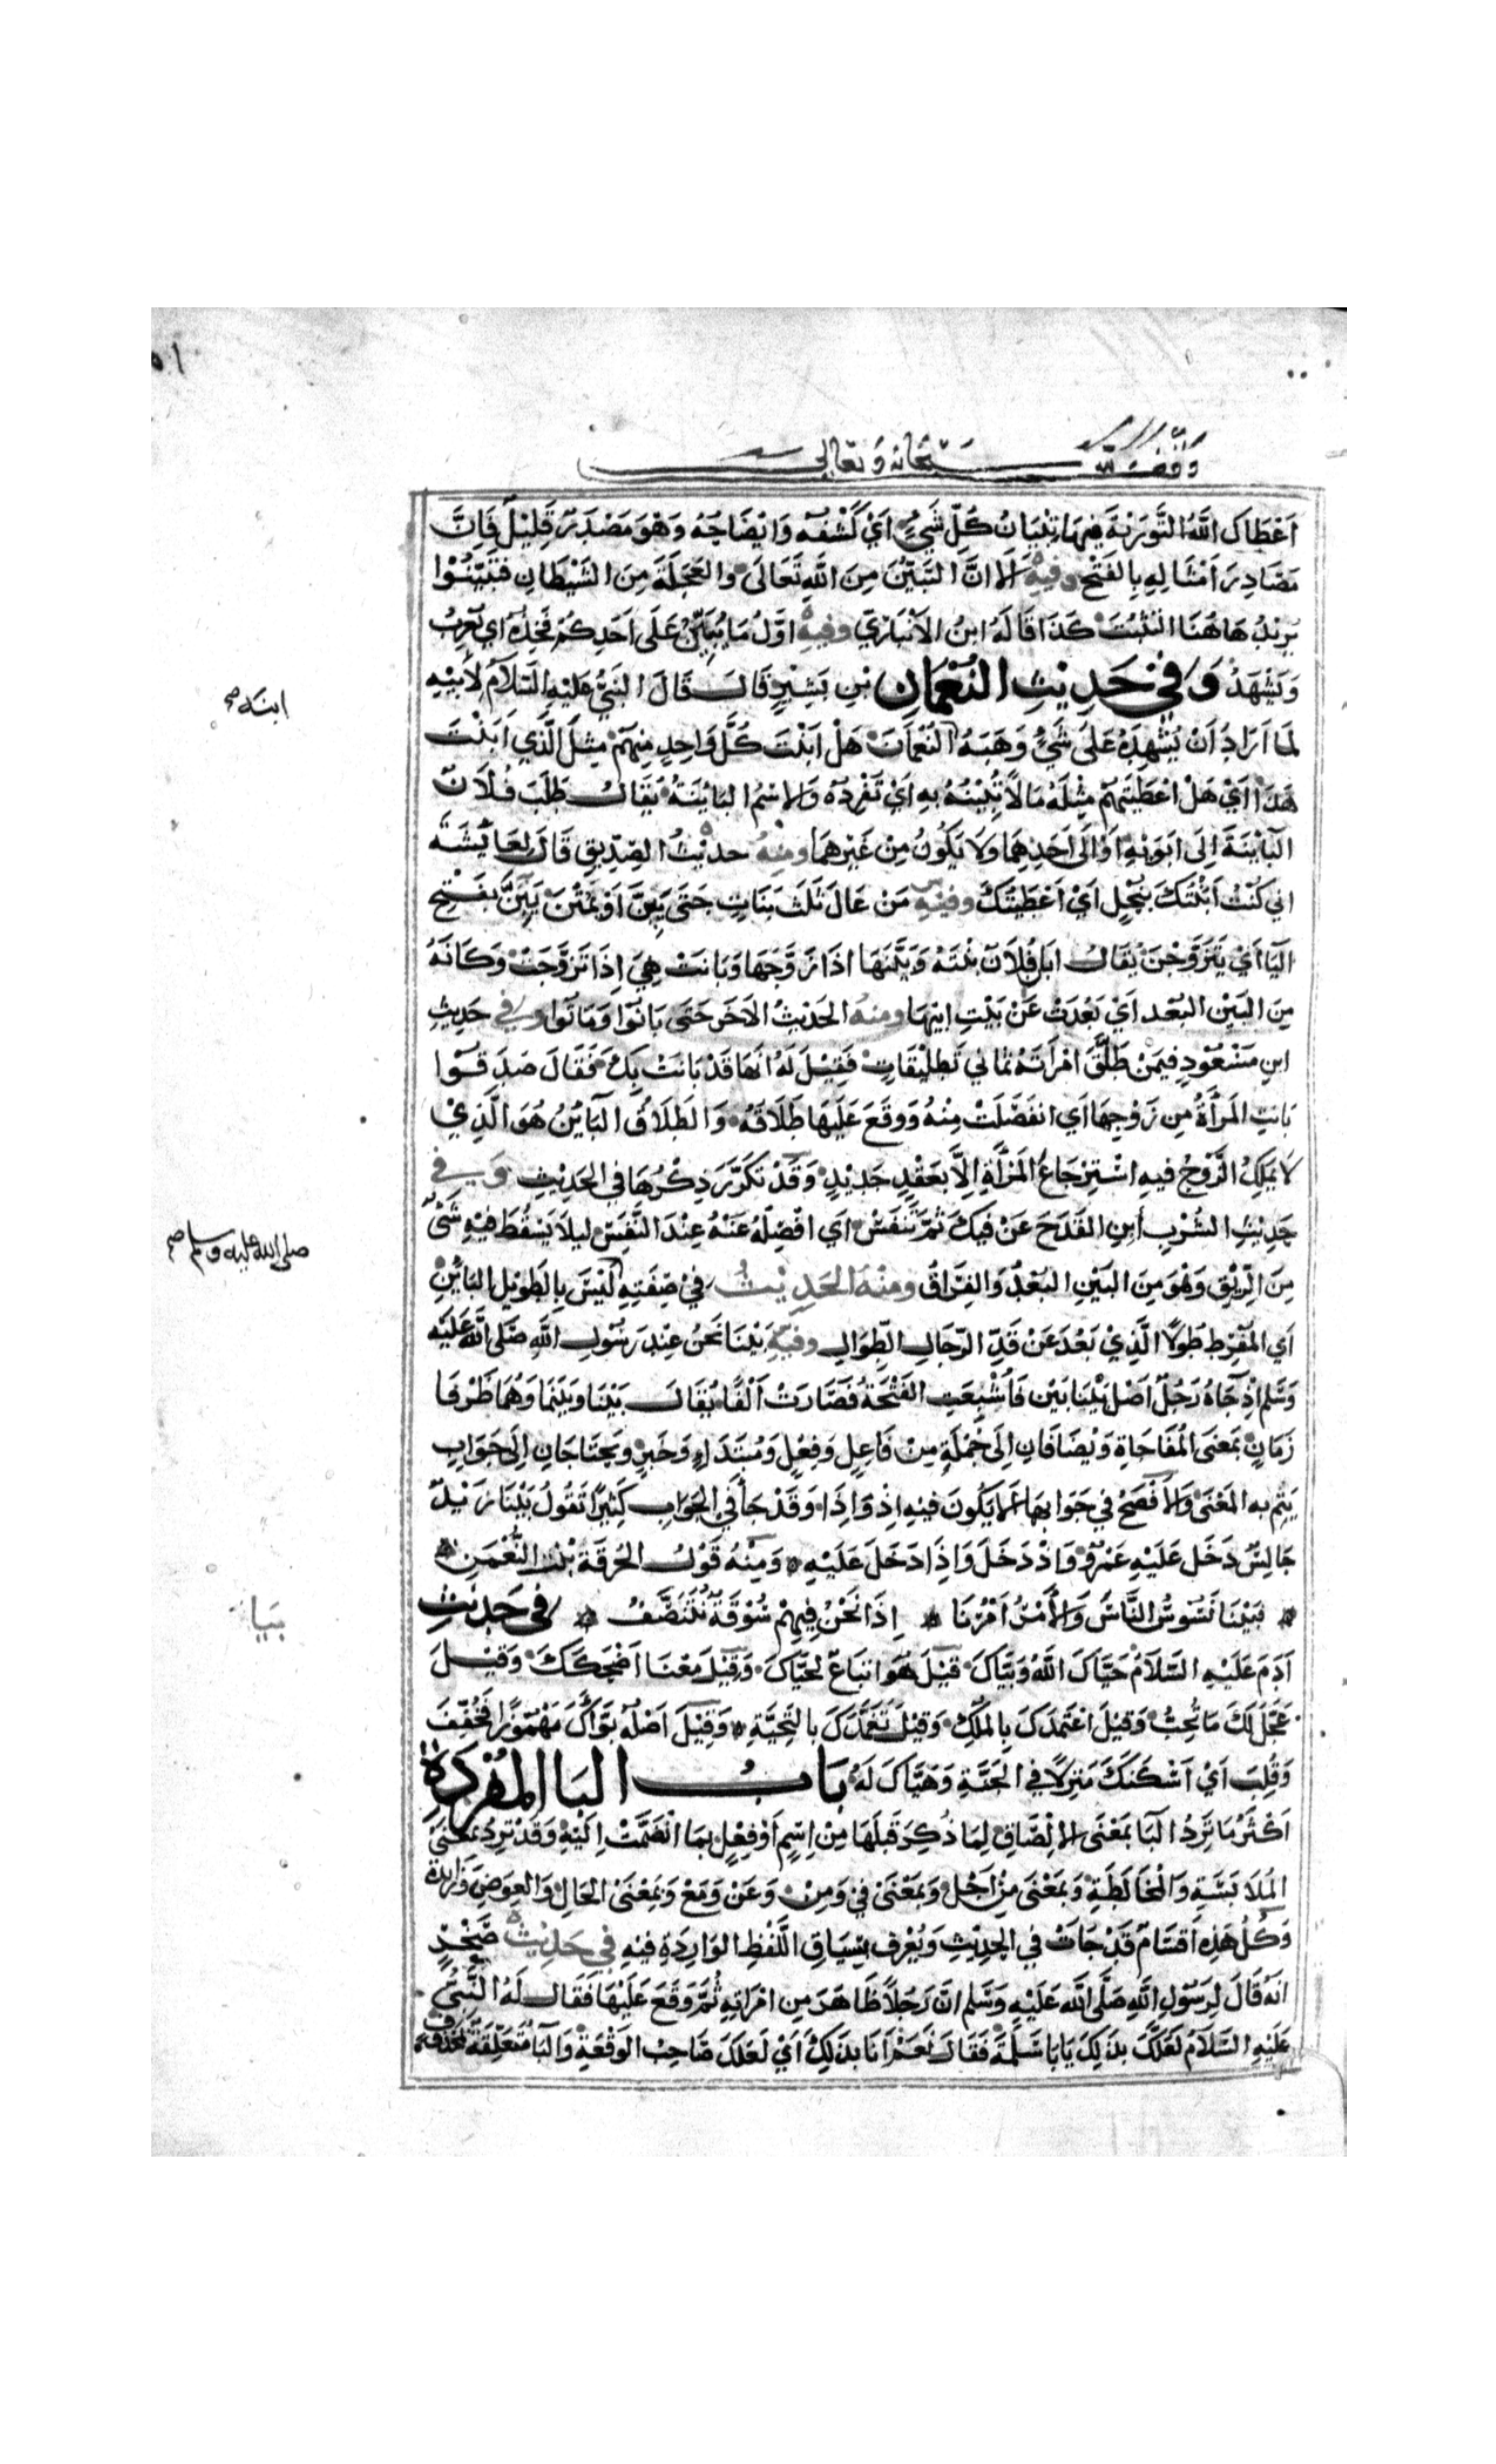 وقف لله سبحانه وتعالى
اَعْطَاكَ اللَّهُ التَّوَرٰيةَ فِيهَا تِبْيَانُ كُلِّ شَيْءٍ اَيْ كَشْفُهُ وَاِيْضَاحُهُ وَهْوَ مَصْدَرٌ قَلِيْلٌ فَاِنَّ
مَصَادِرَ اَمْثَالِهِ بِالفَتْحِ وفيهِ اَلَا اِنَّ التَّبَيُّنَ مِنَ اللَّهِ تَعَالَى والعَجَلَةَ مِنَ الشَّيْطَانِ فَتَبَيَّنُوْا
يُرِيْدُ هَاهُنَا التَّثَبُّتَ كَذَا قَالَهُ ابنُ الاَنْبَارِيّ وفيهِ اوَّلُ مَا يُبِيْنُ عَلَى اَحَدِكُمْ فَخِذُهُ اي يُعْرِبُ
وَيَشْهَدُ وَفي حَدِيْثِ النُعْمَانِ بْنِ بَشِيْرٍ قَالَ قَالَ النَبيُّ عَلَيْهِ السَّلاَمُ لِاَبِيْهِ
لَمَّا اَرَادَ اَنْ يُشْهِدَهُ عَلَى شَيْءٍ وَهَبَهُ النُعْمَانَ هَلْ اَبَنْتَ كُلَّ وَاحِدٍ مِنْهُمْ مِثْلَ الَّذِي اَبَنْتَ
هَذَا اَيْ هَلْ اَعْطَيْتَهُمْ مِثْلَهُ مَالاً تُبِيْنُهُ بِهِ اَيْ تُفْرِدُهُ وَالاسْمُ البَايْنَةُ يُقَالُ طَلَبَ فُلاَنٌ
البَايْنَةَ اِلَى اَبَوَيْهِ اَوْ اِلَى اَحَدِهِمَا وَلاَ يَكُونُ مِنْ غَيْرِهِمَا ومِنْهُ حديْثُ الصِدِّيقِ قَالَ لِعَايْشَةَ
اني كُنْتُ اَبَنْتُكِ بِنُحْلٍ اَيْ اَعْطَيْتُكِ وفيْهِ مَنْ عَالَ ثَلٰثَ بَنَاتٍ حَتَى يَبِنَّ اَوْ يَمُتْنَ يَبِنَّ بفَتْحِ
اليَا اَيْ يَتَزَوَّجْنَ يُقَالُ اَبَانَ فُلاَنٌ بِنْتَهُ وَبَيَّنَهَا اِذَا زَوَّجَهَا وَبَانَتْ هِيَ اِذَا تَزَوَّجَتْ وَكَاَنَهُ
مِنَ البَيْنِ البُعْدِ اَيْ بَعُدَتْ عَنْ بَيْتِ ابِيْهَا ومنهُ الحَدِيْثُ الآخَر حَتَى بَانُوا وَمَاتُوا وفي حَدِيثِ
ابنِ مَسْعُودٍ فِيمَنْ طَلَّقَ امْرَاَتَهُ ثَمَانِي تَطلِيْقَاتٍ فَقِيْلَ لَهُ انَهَا قَدْ بَانَتْ مِنْكَ فَقَالَ صَدَقُوْا
بَانَتِ المَرْأَةُ مِن زَوْجِهَا اَي انفَصَلَتْ مِنْهُ وَوقَعَ عَلَيهَا طَلَاقُهُ وَالطَلاَقُ البَايْنُ هُوَ الَّذِيْ
لَا يَمْلِكُ الزَّوْجُ فيهِ اسْتِرْجَاعَ المَرْأةِ اِلَّا بعَقْدٍ جَدِيْدٍ وَقَدْ تَكَرَّرَ ذِكْرُهَا في الحَدِيْثِ وَفي
حَدِيْثِ الشُرْبِ اَبِنِ القَدَحَ عَنْ فِيكَ ثُمَّ تَنَفَّسْ اَي افْصِلْهُ عَنْهُ عِنْدَ التَّنَفُّسِ ليلاَ يَسْقُطَ فيْهِ شَيْءٌ
مِنَ الرِّيْقِ وَهْوَ مِنَ البَيْنِ البُعْدِ وَالفِرَاقِ ومِنْهُ الحَدِيْثُ في صِفَتِهِ لَيْسَ بِالطَوِيْلِ البَايْنِ
اَي المُفْرِطِ طُولاً الَّذِيْ بَعُدَ عَنْ قَدِّ الرّجَالِ الطِّوَالِ وفيْهِ بَيْنَا نَحْنُ عِنْدَ رَسُوْلِ اللَّهِ صَلَى اللَّهُ عَلَيْهِ
وَسَلَّم اِذْ جَاءَهُ رَجُلٌ اَصْلُ بَيْنَا بَيْنَ فَاُشْبِعَتِ الفَتْحَةُ فَصَارَتْ اَلْفًا يُقَالُ بَيْنَا وَبَيْنَمَا وَهُمَا ظَرْفَا
زَمَانٍ بمَعْنَى المُفَاجَاةِ وَيُضَافَانِ اِلَى جُمْلَةٍ مِنْ فَاعِلٍ وَفِعْلٍ وَمُبْتَدَاءٍ وَخَبَرٍ وَيحتَاجَانِ اِلَى جَوَابٍ
يَتِمُّ بِهِ المَعْنَى وَالاَفْصَحُ في جَوَابِهَا اَلاَ يَكُونَ فيْهِ اِذْ وَاِذَا وَقَدْ جَاَ في الجَوَابِ كَثِيْرًا تَقُولُ بَيْنَا زَيْدٌ
جَالِسٌ دَخَلَ عَلَيْهِ عَمْرٌو وَاذْ دَخَلَ وَاِذَا دَخَلَ عَلَيْهِ وَمِنْهُ قَوْلُ الحُرقَةَ بْنتِ النُّعْمٰنِ
فَبَيْنَا نَسُوْسُ النَّاسَ وَالأَمْرُ اَمْرُنَا اِذَا نَحْنُ فِيهِمْ سُوْقَةٌ نَتَنَصَّفُ في حَدِيْثِ
اٰدَمَ عَلَيْهِ السَّلاَمُ حَيَّاكَ اللَّهُ وَبَيَّاكَ قِيْلَ هُوَ اِتبَاعٌ لحَيَّاكَ وَقِيْلَ مَعْنَا اَضْحَكَكَ وَقِيْلَ
عَجَّلَ لَكَ مَا تُحِبُّ وَقِيْلَ اعْتَمَدَكَ بِالمُلكِ وَقِيْلَ تَعَمَّدَكَ بِالتَحِيَّةِ وَقِيْلَ اَصْلُهُ بَوَّأَكَ مَهْمُوزًا فَخُفِّفَ
وَقُلِبَ اَيْ اَسْكَنَكَ مَنزِلاً في الجَنَّةِ وَهَيَّاكَ لَهُ بَابُ البَا المُفْرَدَةِ
اَكْثَرُ مَا تَرِدُ البَآ بمَعْنَى الالْصَاقِ لِمَا ذُكِرَ قَبلَهَا مِن اِسْمٍ اَوْ فِعْلٍ بِمَا انْضَمَّتْ اِلَيْهِ وَقَدْ تَرِدُ بمَعْنَى
المُلاَبَسَةِ وَالمُخَالَطَةِ وَبِمَعْنَى مِنْ اَجْلِ وَبمَعْنَى في وَمِنْ وَعَنْ وَمَعْ وَبمَعْنَى الحَالِ وَالعِوَضِ وَزَايِدة
وَكُلُّ هَذِهِ اَقسَامٌ قَدْ جَاتْ في الحَدِيْثِ وَتُعْرَفُ بسِيَاقِ اللَّفْظِ الوَارِدَةِ فيْهِ في حَدِيْثِ صَخْرٍ
اَنَهُ قَالَ لِرَسُولِ اللَّهِ صَلَّى اللَّه عَلَيْهِ وَسَلَّم انَّ رَجُلاً ظَاهَرَ مِن امْرَاتِهِ ثُمَّ وَقَعَ عَلَيْهَا فَقَالَ لَهُ النَّبيُّ
عَلَيْهِ السَّلاَمُ لَعَلَّكَ بذَلِكَ يَابَا سَلَمَةَ فَقَالَ نَعَمْ اَنَا بذَلِكَ اَيْ لَعَلَكَ صَاحِبُ الوَقْعَةِ وَالبَا مُتَعَلِّقَةٌ بمحذوف
ابنه صح
صلى الله عليه وسلم صح
بَيَا